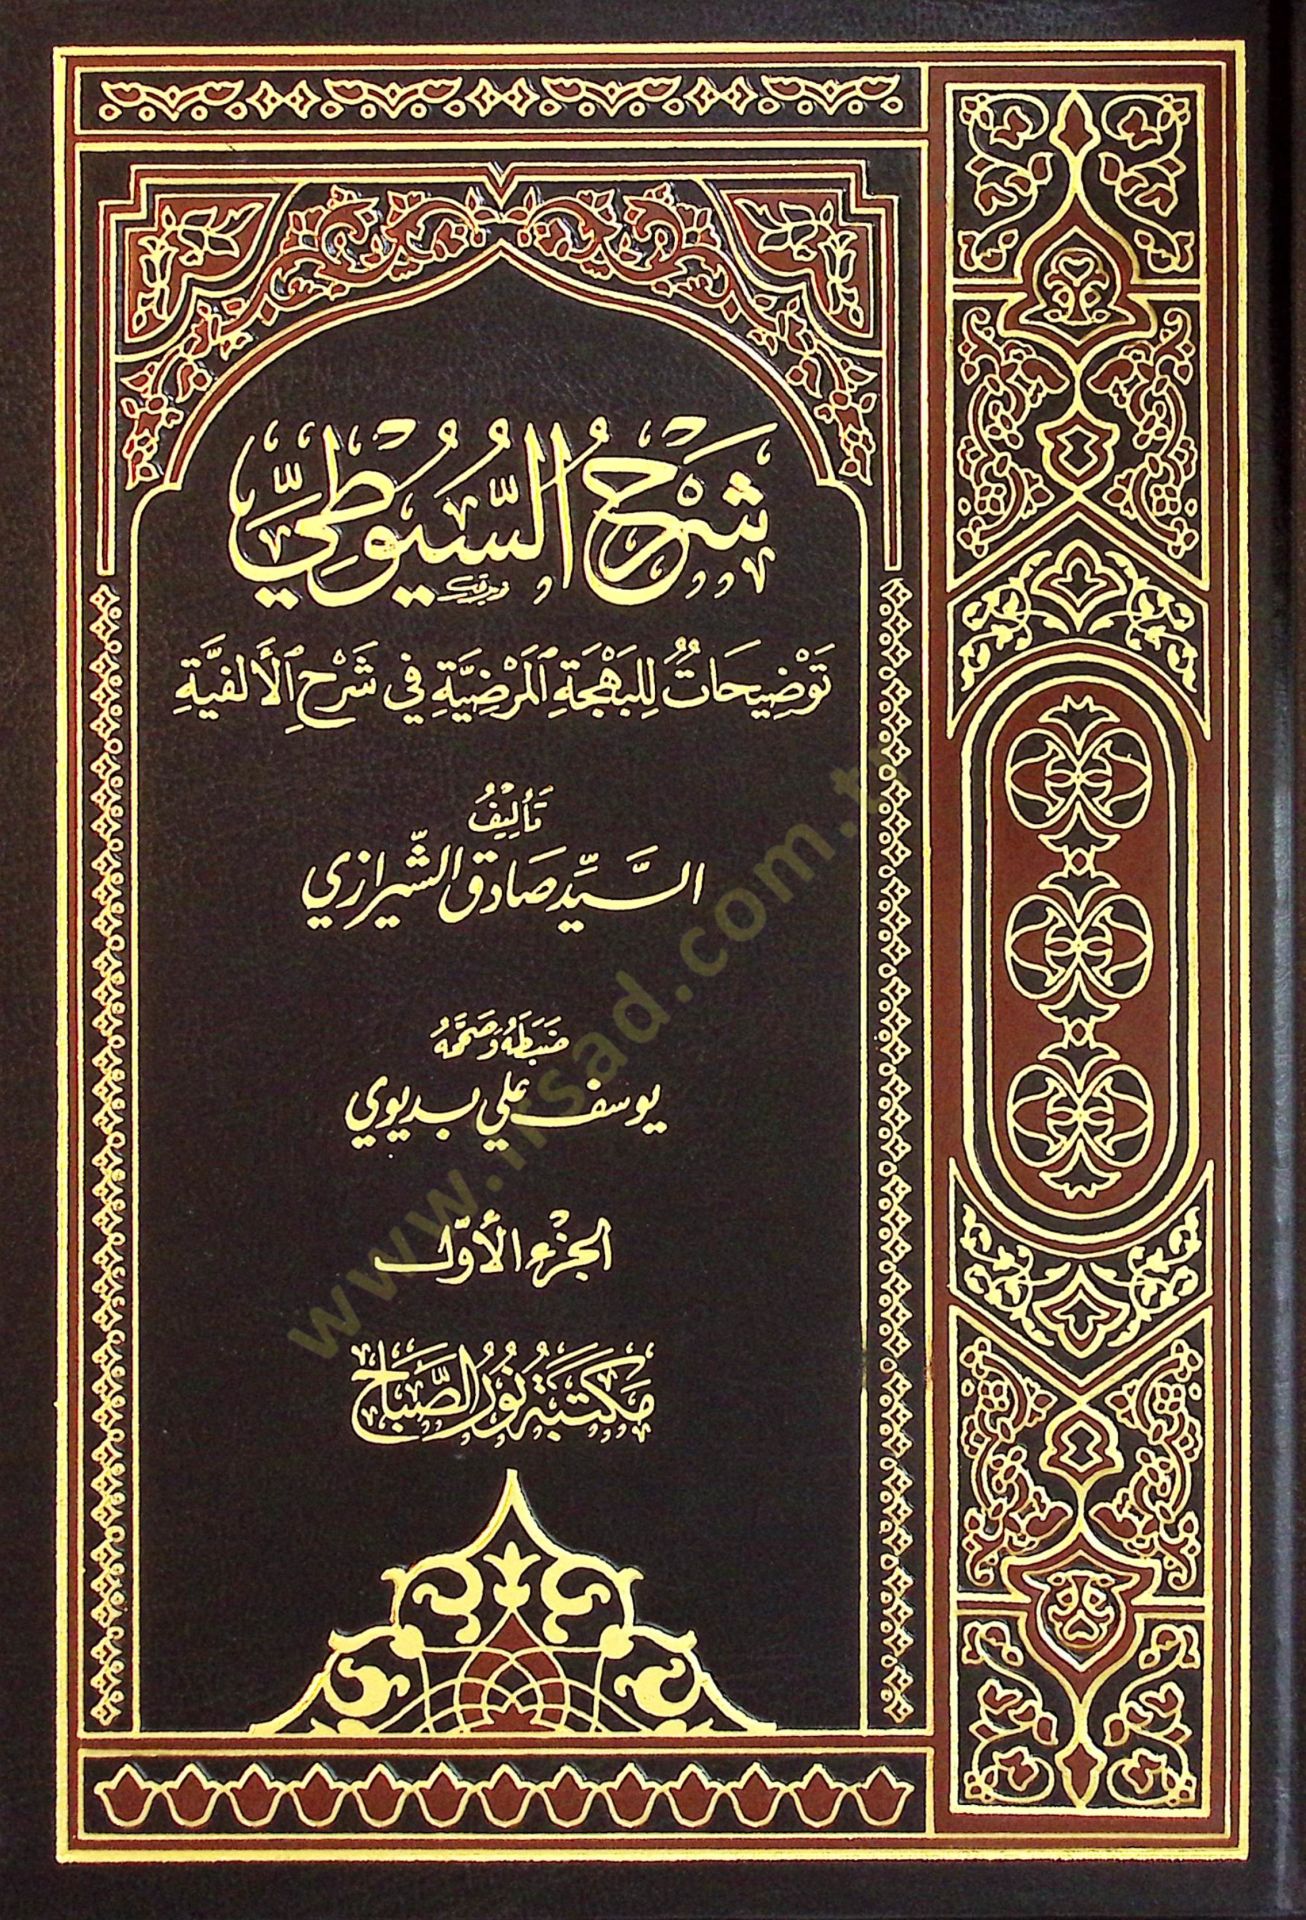 شَرْحُ السُّيُوطِيِّ
تَوْضِيحَاتٌ لِلبَهْجَةِ المَرْضِيَّةِ فِي شَرْحِ الأَلفيَّةِ
تَأْلِيفُ
السَّيِّد صَادِق الشِّيرازي
ضَبَطَهُ وَصَحَّحَهُ
يوسف علي بديوي
الجزْء الأوّل
مَكتَبَة نُور الصَّبَاح
www.irsad.com.tr